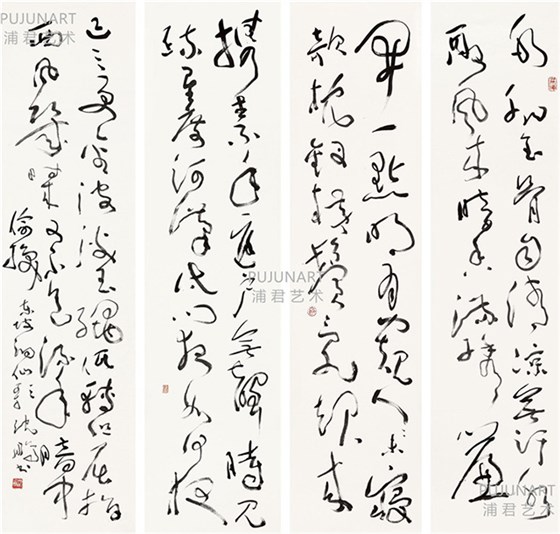 冰肌玉骨自清涼無汗水
殿風來暗香滿繡簾
開一點明月窺人未寢
欹枕釵橫鬢亂起來
攜素手庭戶無聲時見
疏星度河漢試問夜如何夜
已三更金波淡玉繩低轉但屈指
西風幾時來又不道流年暗中
偷換 東坡洞仙歌 沈鵬書
PUJUNART
浦君艺术
PUJUNART
浦君艺术
PUJUNART
浦君艺术
PUJUNART
浦君艺术
PUJUNART
浦君艺术